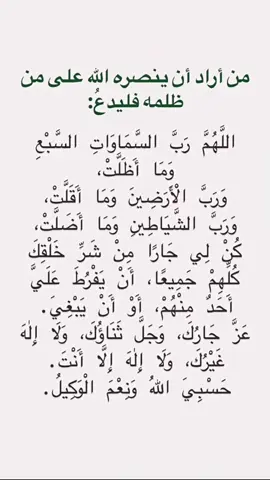 من أراد أن ينصره الله على من
ظلمه فليدعُ:
اللَّهُمَّ رَبَّ السَّمَاوَاتِ السَّبْعِ
وَمَا أَظَلَّتْ،
وَرَبَّ الْأَرَضِينَ وَمَا أَقَلَّتْ،
وَرَبَّ الشَّيَاطِينِ وَمَا أَضَلَّتْ،
كُنْ لِي جَارًا مِنْ شَرِّ خَلْقِكَ
كُلِّهِمْ جَمِيعًا، أَنْ يَفْرُطَ عَلَيَّ
أَحَدٌ مِنْهُمْ، أَوْ أَنْ يَبْغِيَ.
عَزَّ جَارُكَ، وَجَلَّ ثَنَاؤُكَ، وَلَا إِلٰهَ
غَيْرُكَ، وَلَا إِلٰهَ إِلَّا أَنْتَ.
حَسْبِيَ اللهُ وَنِعْمَ الْوَكِيلُ.